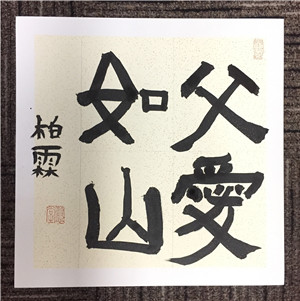 父愛
如山
柏霖